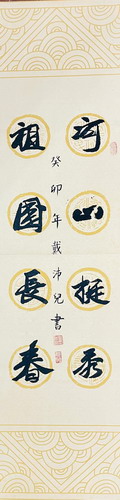 河山挺秀
祖國長春
癸卯年戴沛兒書